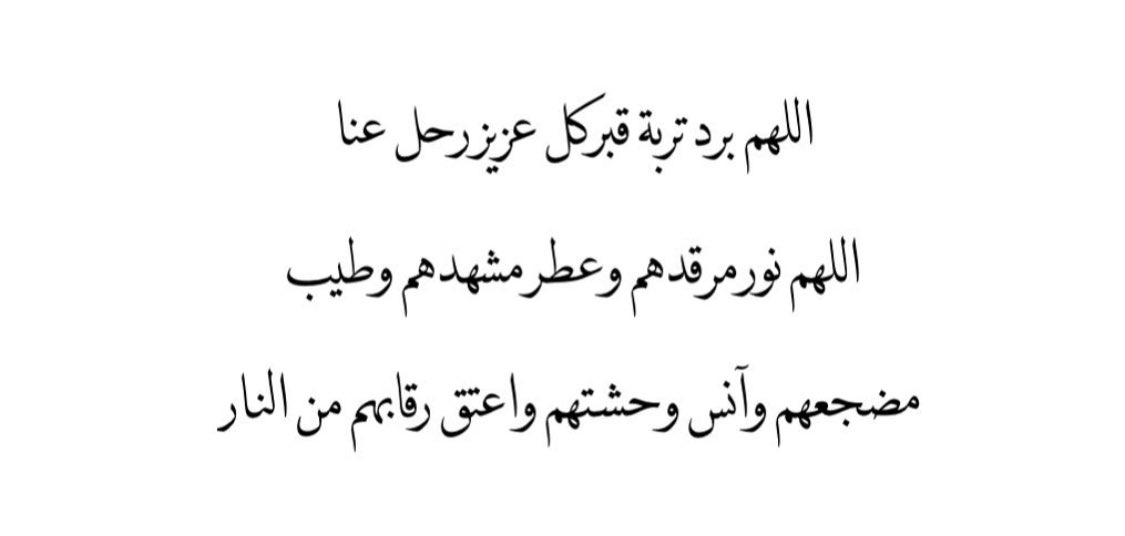 اللهم برد تربة قبر كل عزيز رحل عنا
اللهم نور مرقدهم وعطر مشهدهم وطيب
مضجعهم وآنس وحشتهم واعتق رقابهم من النار